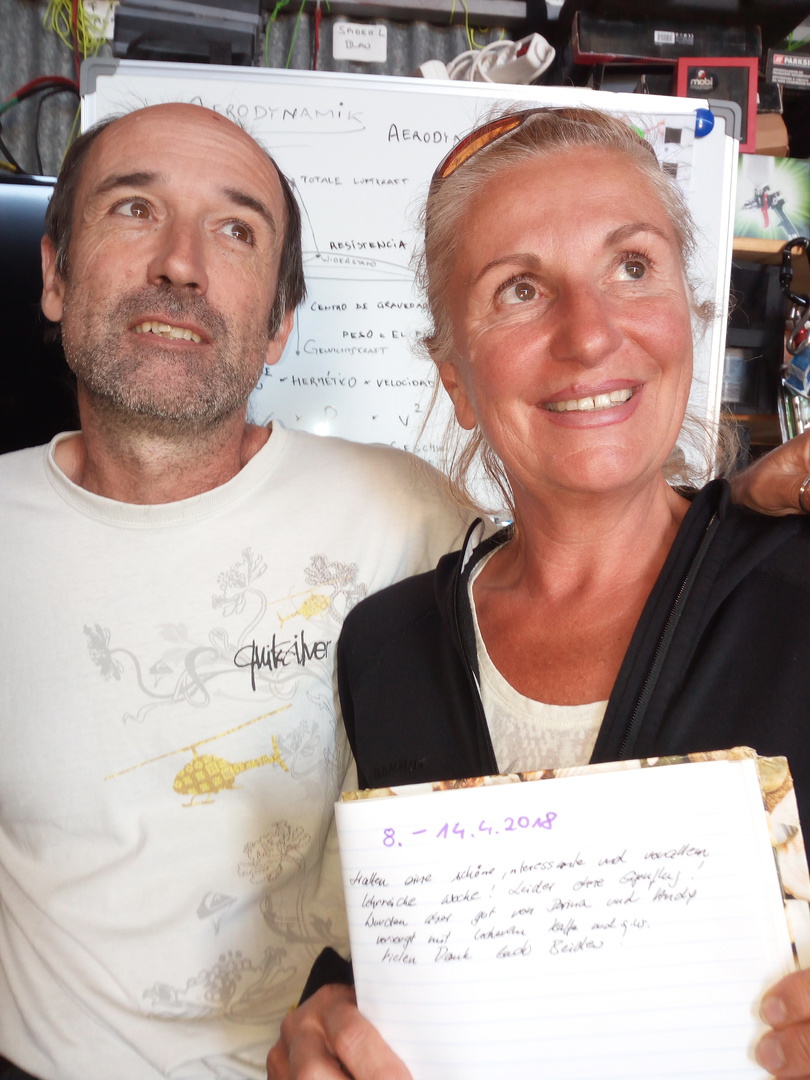 SABER L
BLAU
mobi
PARKSI
AERODYNAMIK
AERODYNA
TOTALE LUFTKRAFT
RESISTENCIA
WIDERSTAND
CENTRO DE GRAVEDAD
PESO = EL P
GEWICHTSKRAFT
HERMÉTICO × VELOCIDAD
V²
GESCHW
quiksilver
8. - 14.4.2018
Hatten eine schöne, interessante und vor allem
lehrreiche Woche! Leider ohne
Wurden aber gut von und Andy
versorgt mit Kaffe und
Vielen Dank Beiden!